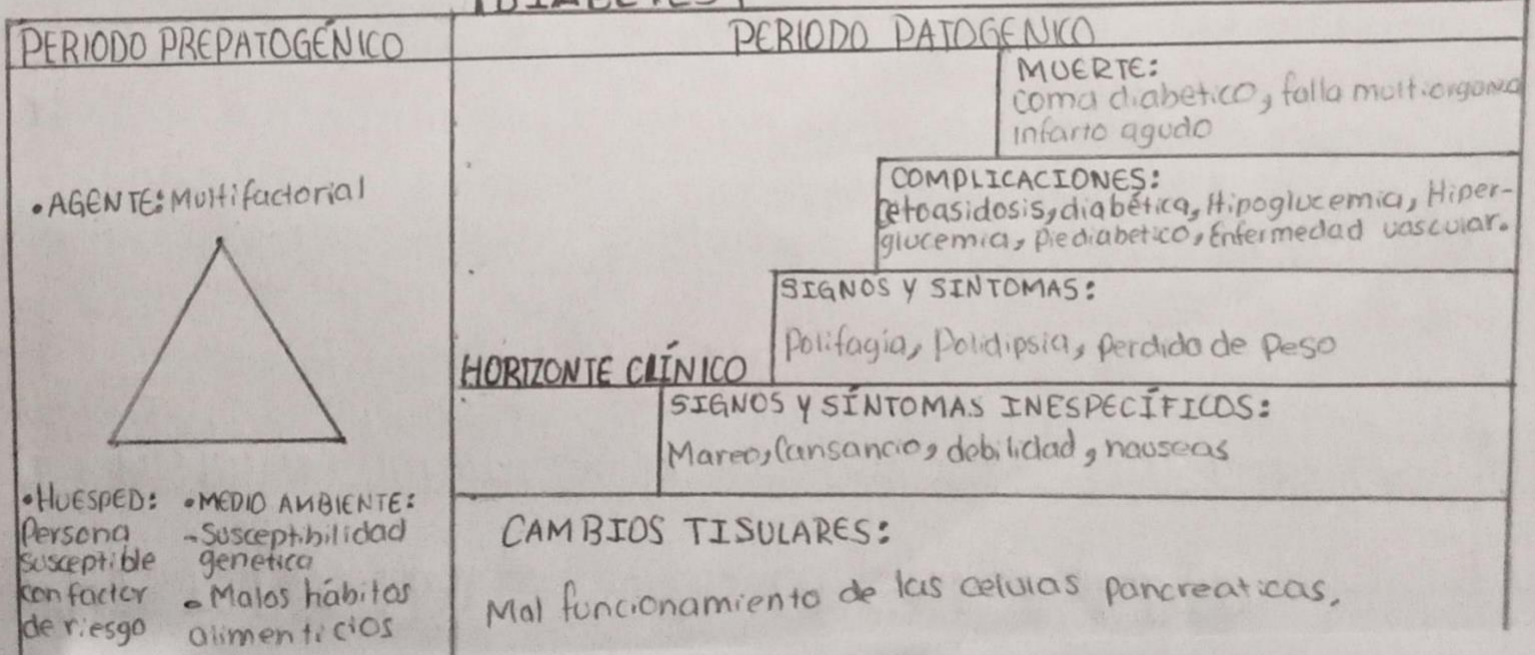 PERIODO PREPATOGÉNICO
PERIODO PATOGENICO
• AGENTE: Multifactorial
• HUESPED:
Persona
susceptible
con factor
de riesgo
• MEDIO AMBIENTE:
- Susceptibilidad
genetica
• Malos hábitos
alimenticios
MUERTE:
coma diabetico, falla multiorgana
infarto agudo
COMPLICACIONES:
cetoasidosis, diabética, Hipoglucemia, Hiper-
glucemia, piediabetico, Enfermedad vascular.
SIGNOS Y SINTOMAS:
Polifagia, Polidipsia, perdida de peso
HORIZONTE CLÍNICO
SIGNOS Y SÍNTOMAS INESPECÍFICOS:
Mareo, Cansancio, debilidad, nauseas
CAMBIOS TISULARES:
Mal funcionamiento de las celulas pancreaticas.